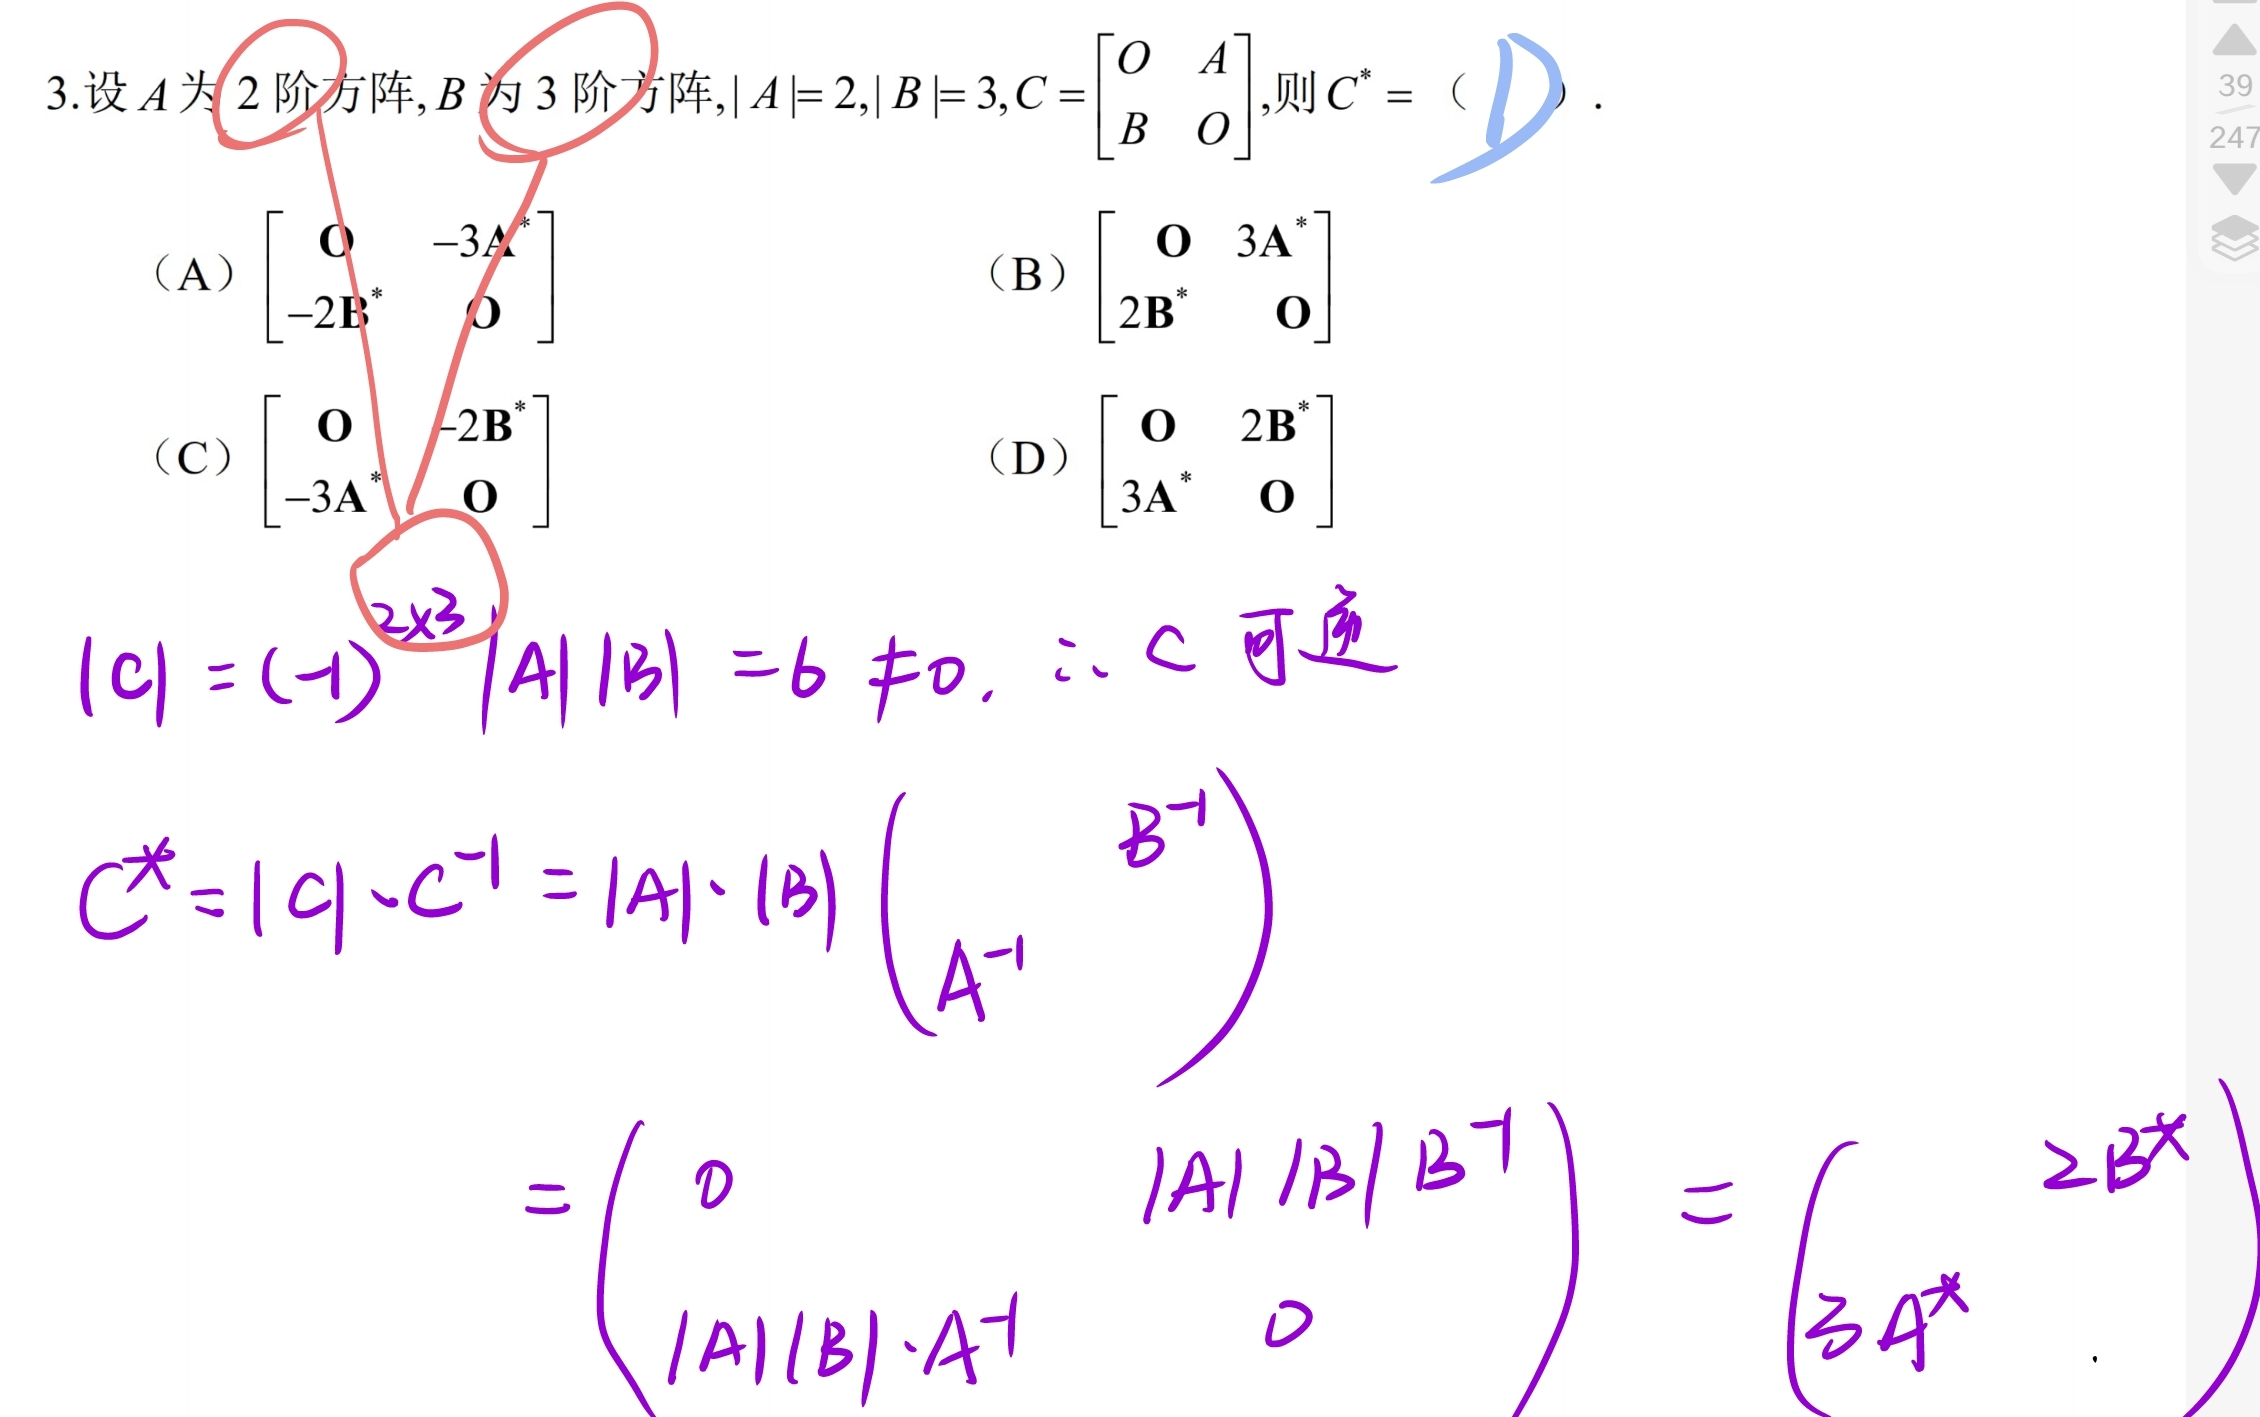 3.设 A 为 2 阶方阵, B 为 3 阶方阵, | A |= 2, | B |= 3, C = [O A; B O], 则 C* = （ D ）.
（A）[O -3A*; -2B* O] （B）[O 3A*; 2B* O]
（C）[O -2B*; -3A* O] （D）[O 2B*; 3A* O]
|C| = (-1)^{2×3} |A| |B| = 6 ≠ 0. ∴ C 可逆
C* = |C| · C^{-1} = |A| · |B| ( B^{-1}; A^{-1} )
= ( 0 |A| |B| B^{-1}; |A| |B| · A^{-1} 0 ) = ( 2B*; 3A* )
39
247